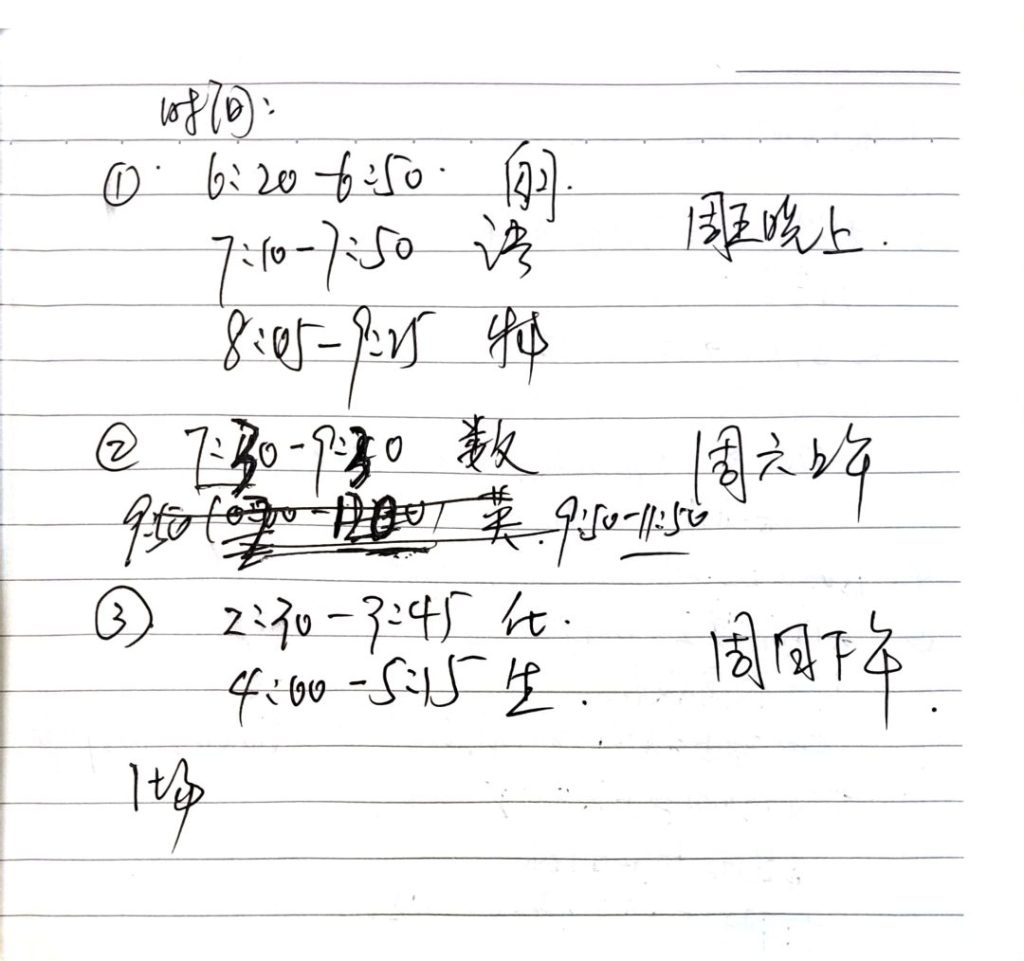 时间:
① 6:20-6:50
7:10-7:50 语
周五晚上.
8:05-9:25 物
② 7:30-9:30 数
周六上午
9:50 英. 9:50-11:50
③ 2:30-3:45 化.
周日下午.
4:00-5:15 生.